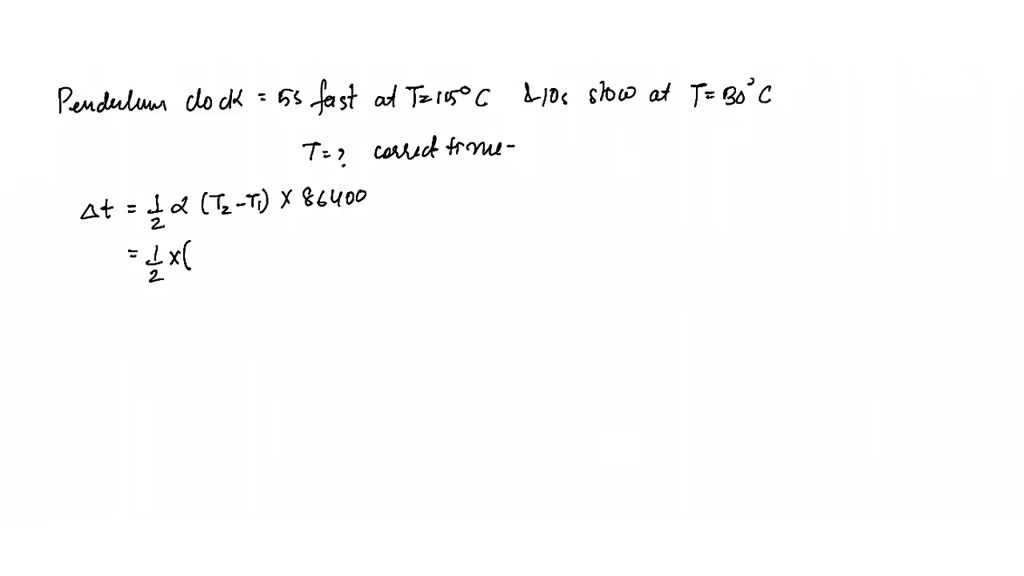 Pendulum clock = 5s fast at T=15°C & 10s slow at T=30°C
T=? correct time-
Δt = 1/2 α (T₂-T₁) × 86400
= 1/2 ×(